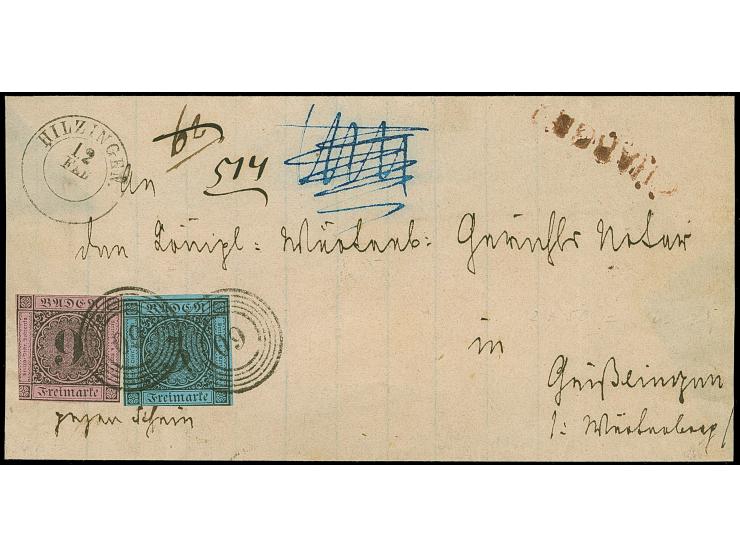 HILZINGEN.
12
FEB
62
514
CHARGÉ.
An
den Königl: Würtemb: Gerichts Notar
in
Geißlingen
/: Würtemberg /
BADEN
9
Freimarke
BADEN
Freimarke
gegen Schein